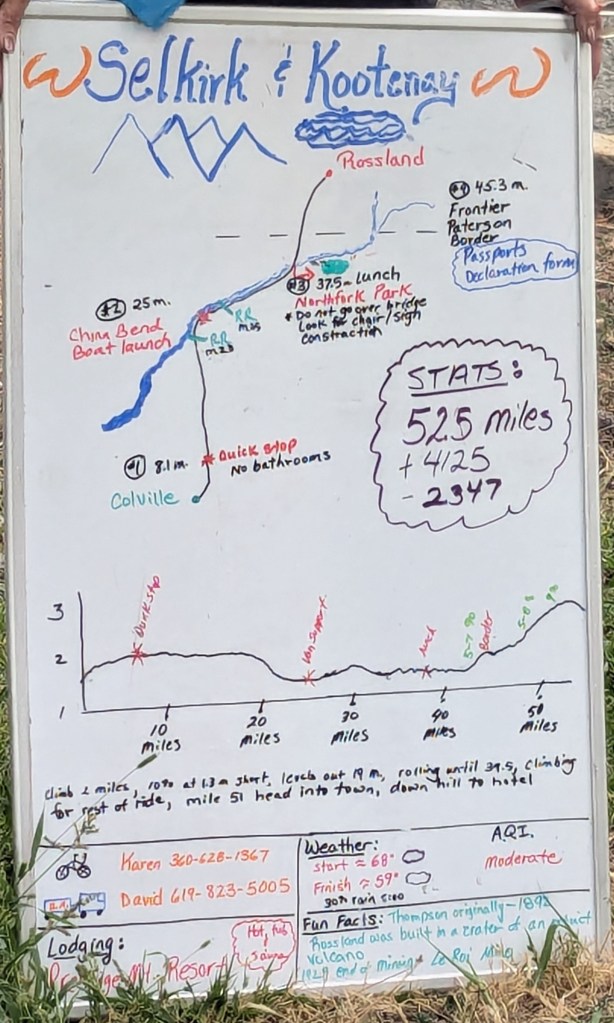 Selkirk & Kootenay
Rossland
#4 45.3 m.
Frontier
Paterson
Border
Passports
Declaration form
#3 37.5 m Lunch
Northfork Park
* Do not go over bridge
Look for chair/sign
construction
#2 25 m.
China Bend
Boat launch
RR
RR
#1 8.1 m.
Quick stop
No bathrooms
Colville
STATS:
52.5 miles
+ 4125
- 2347
3
2
1
Quick stop
Van support
Lunch
5-7 %
Border
5-8 %
9%
10 miles
20 miles
30 miles
40 miles
50 miles
climb 2 miles, 10% at 1.3 m short, levels out 19 m, rolling until 39.5, climbing
for rest of ride, mile 51 head into town, down hill to hotel
Karen 360-628-1367
David 619-823-5005
Lodging:
Hot tub
Sauna
Resort
Weather:
start ≈ 68°
Finish ≈ 59°
30% rain 5:00
A.Q.I.
moderate
Fun Facts: Thompson originally - 1892
Rossland was built in a crater of an extinct
volcano
end of mining - Le Roi Mine